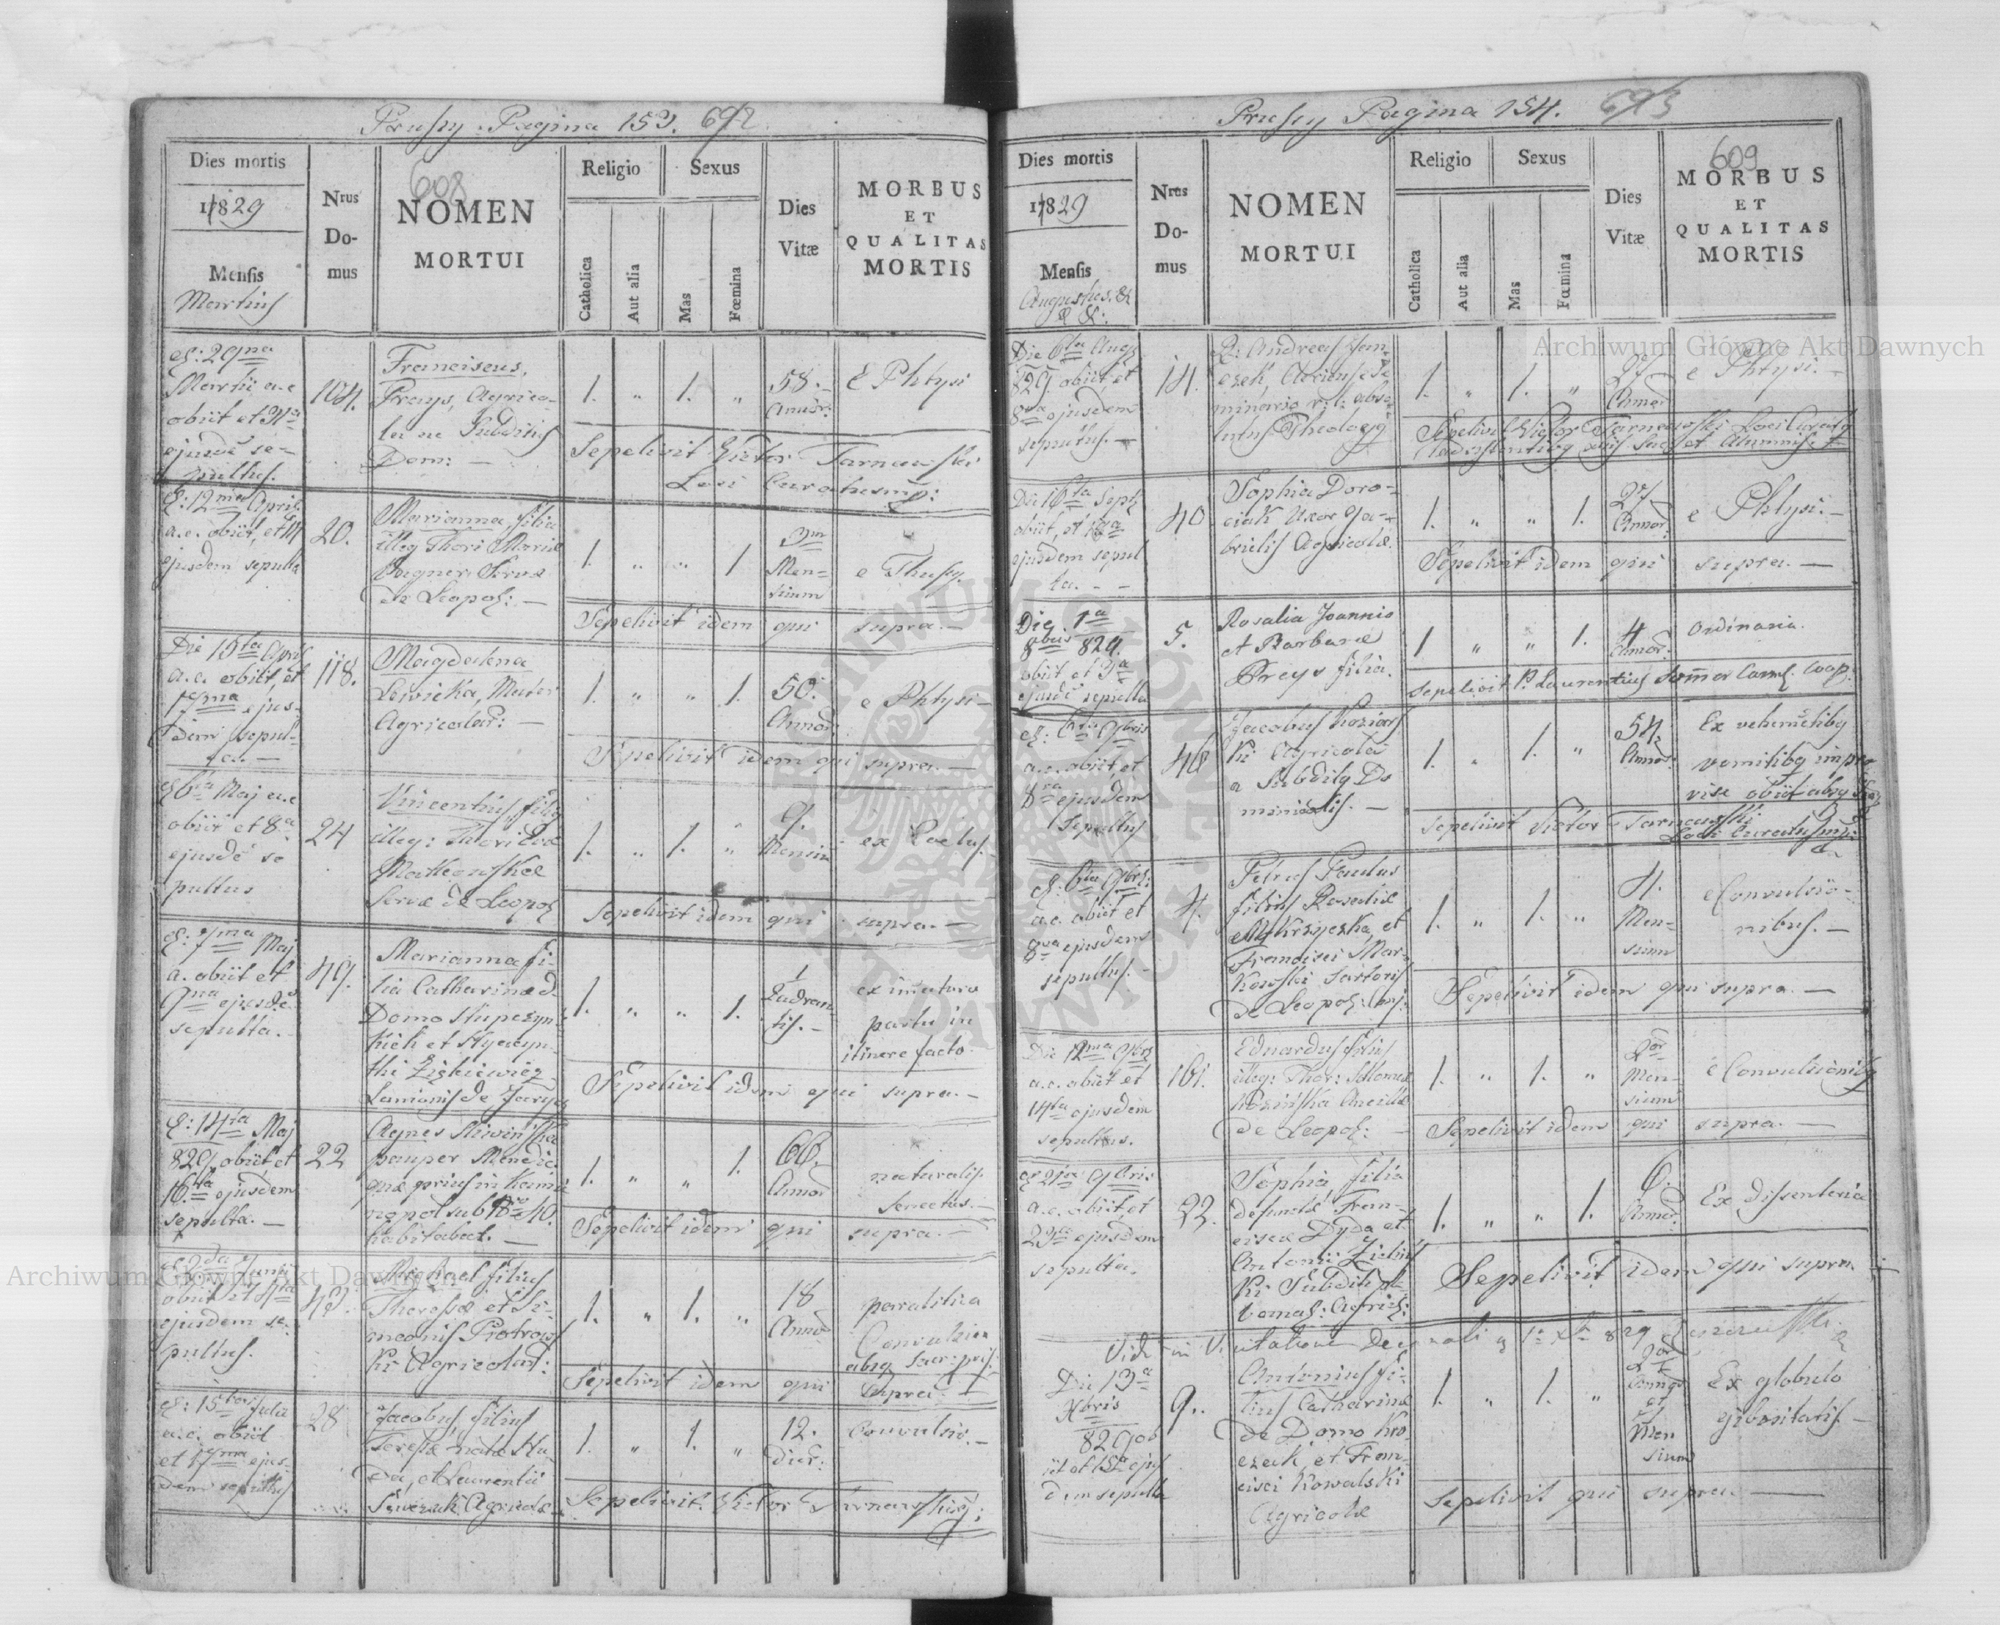 Prusy. Pagina 153. 692
608
Dies mortis
1829
Mensis
Martius
Nrus Do-
mus
NOMEN
MORTUI
Religio
Catholica
Aut alia
Sexus
Mas
Fœmina
Dies
Vitæ
MORBUS
ET
QUALITAS
MORTIS
29na
Martii a.c
obiit et
ejusdē se-
pultus.
104.
Franciscus,
Prays, Agrico-
la ac Subditus
Dom: —
1. „ 1. „
58.
Annor:
e Phtysi
Sepelivit Victor Tarnawski
Loci Curatus mp:
12ma Aprilis
a.c. obiit, et 14
ejusdem sepulta
20.
Marianna, filia
illeg Thori Mariæ
Wagner Servæ
de Leopol: —
1. „ „ 1
3m
Men-
sium
e Thusy.
Sepelivit idem qui supra. —
Die 15ta April
a.c. obiit, et
17ma ejus-
dem sepul-
ta. —
118.
Magdalena
Lewicka, Mater
Agricolar: —
1. „ „ 1.
50.
Annor.
e Phtysi —
Sepelivit idem qui supra. —
6ta Maj a.c
obiit et 8a
ejusdē se
pultus
24
Vincentius filius
illeg: Thori
Matkowskæ
Servæ de Leopol
1. „ 1. „
9.
Mensiū
Sepelivit idem qui supra. —
7ma Maj
a. obiit et
9na ejusdē
sepulta. —
49.
Marianna fi-
lia Catharinæ d
Domo Stupczyn-
kich et Hyacyn-
thi
Lanionis de
1. „ „ 1.
1
Quadran-
tis. —
ex inmaturo
partu in
itinere facto
Sepelivit idem qui supra. —
14ta Maj
829 obiit et
16ta ejusdem
sepulta. —
22
Agnes
pauper Mendic
quæ prius in
nopol sub Nro 40.
habitabat. —
1. „ „ 1.
66.
Annor
naturalis.
Senectus. —
Sepelivit idem qui supra. —
2da Junii
obiit et 4ta
ejusdem se-
pultus.
43.
Michael filius
Theressæ et Si-
meonis Piotrows
ki Agricolar:
1. „ 1. „
18
Annor
paralitica
Convulsion
absq Sacr:
Sepelivit idem qui supra. —
15ta Julii
a.c. obiit
et 17ma ejus-
dem sepultus
28
Jacobus, filius
Teresæ natæ
et Laurentii
Agricolæ
1. „ 1. „
12.
Dier:
Convulsio. —
Sepelivit. Victor Tarnawski mp;
Prusy Pagina 154. 693
609
Dies mortis
1829
Mensis
Augustus &
& &:
Nres
Do-
mus
NOMEN
MORTUI
Religio
Catholica
Aut alia
Sexus
Mas
Fœmina
Dies
Vitæ
MORBUS
ET
QUALITAS
MORTIS
Die 6ta Aug
829 obiit, et
8va ejusdem
sepultus. —
14.
R: Andreas
minario r. l: abso-
lutus Theologg
1. „ 1. „
27
Annor
e Phtysi. —
Sepelivit Victor Tarnawski Loci Curatg
et Alumnis
Die 16ta Sept
obiit, et
ejusdem sepul
ta. — —
40
Sophia Doro-
ciak Uxor Ga-
brielis Agricolæ.
1. „ „ 1.
27
Annor.
e Phtysi. —
Sepelivit idem qui supra. —
Die 1a
8bris 829.
obiit, et 3a
ejusdē sepulta
5.
Rosalia Joannis
et Barbaræ
Preys filia.
1 „ „ 1.
4
Annor.
Ordinaria.
Sepelivit P. Laurentius Coop.
6ta 9bris
a.c. obiit, et
8va ejusdem
sepultus
46
Jacobus
ki Agricola
a Subditg Do
minicalis. —
1. „ 1. „
54.
Annor
Ex vehemētibg
vomitibg impro
vise obiit absq
Sepelivit Victor Tarnawski
Loci Curatus mp:
6ta 9bris:
a.c. obiit et
8va ejusdem
sepultus. —
4.
Petrus Paulus
filius Rosaliæ
et
Francisci Mar-
kowski Sartoris
de Leopol:
1. „ 1. „
4.
Men-
sium
e Convulsio-
nibus. —
Sepelivit idem qui supra. —
Die 12ma 9bris
a.c. obiit et
14ta ejusdem
sepultus.
161.
Eduardus filius
illeg: Thor: Salomeæ
Ancillæ
de Leopol: —
1. „ 1. „
2or
Men-
sium
e Convulsionibg
Sepelivit idem qui supra. —
21ma 9bris
a.c. obiit, et
23tia ejusdem
sepulta.
22.
Sophia, filia
defunctæ Fran-
ciscæ Dyda et
Antonii
ki Subditi
Agric:
1. „ „ 1.
6.
Annor.
Ex dissenteria
Sepelivit idem qui supra —
Vidi in Visitatione Decanali 829
Die 13a
Xbris
829 ob
iit et 15a ejus
dem sepulta
9..
Antonius fi-
lius Catharinæ
de Domo Kro-
czak, et Fran-
cisci Kowalski
Agricolæ
1. „ 1. „
2or
Annor
et
Men
sium
Ex globulo
gibositatis. —
Sepelivit qui supra. —
Archiwum Główne Akt Dawnych
Archiwum Główne Akt Dawnych
ARCHIWUM GŁÓWNE AKT DAWNYCH